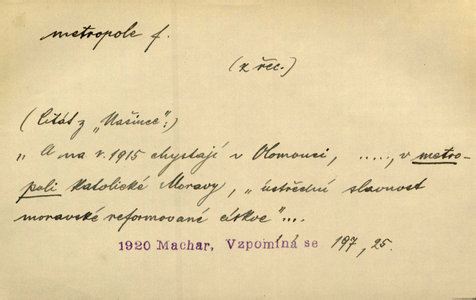 metropole f.
(z řec.)
(Citát z „Našince":)
„A na r. 1915 chystají v Olomouci, ....., v metro-
poli katolické Moravy, „ústřední slavnost
moravské reformované církve"...
1920 Machar, Vzpomíná se 197, 25.